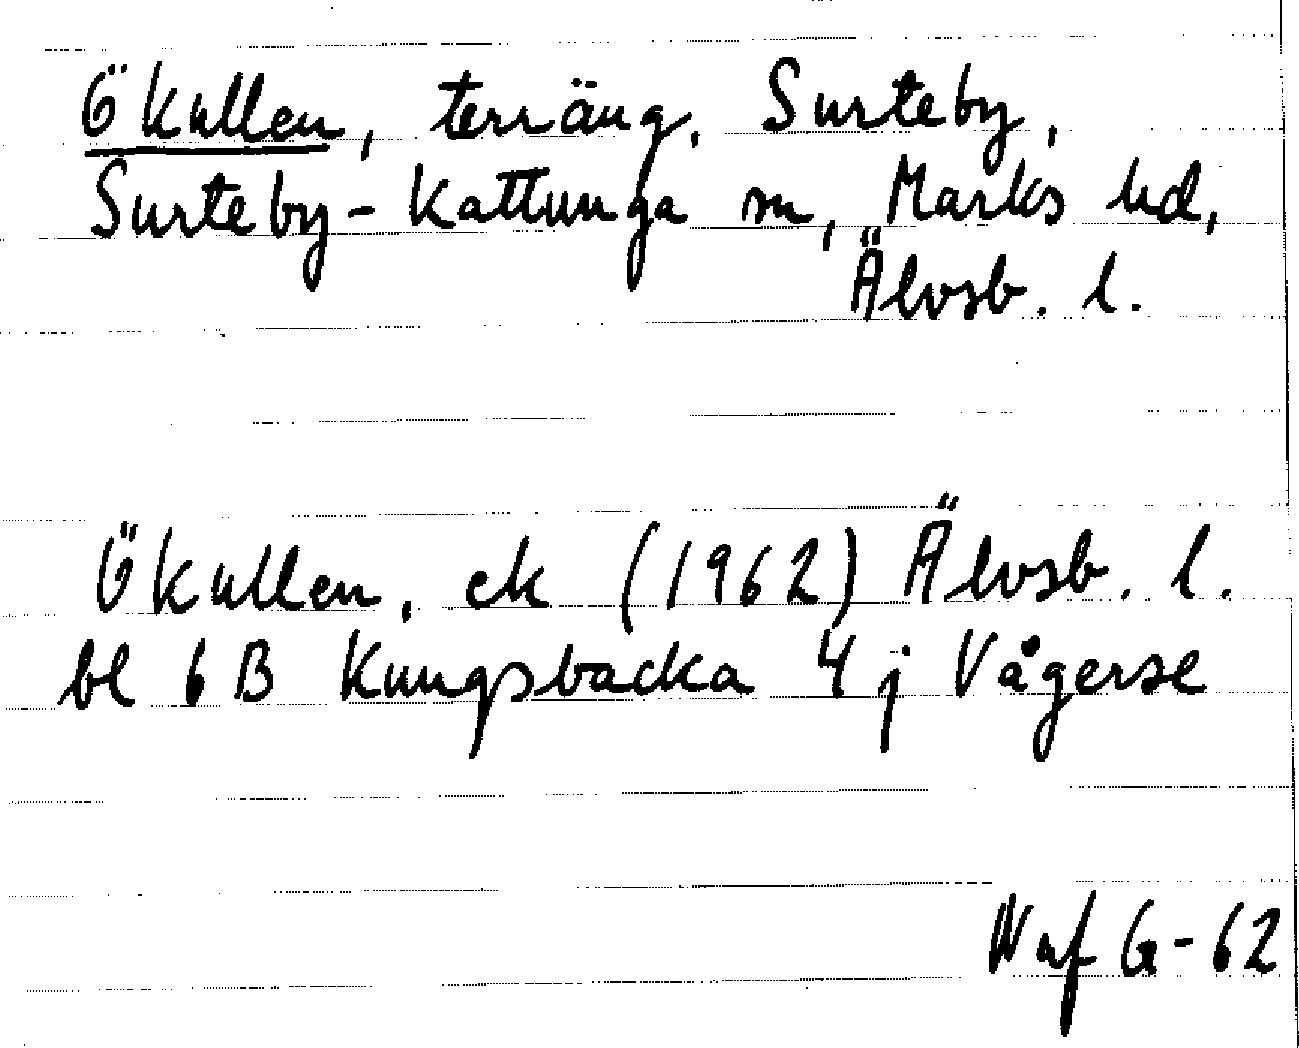 Ökullen, terräng, Surteby,
Surteby-Kattunga sn, Marks hd,
Älvsb. l.
Ökullen, ek (1962) Älvsb. l.
bl 6 B Kungsbacka 4 j Vågerse
Naf G-62